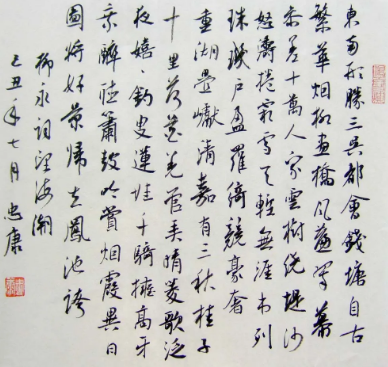 東南形勝三吳都會錢塘自古
繁華烟柳畫橋風簾翠幕
參差十萬人家雲樹繞堤沙
怒濤捲霜雪天塹無涯市列
珠璣戶盈羅綺競豪奢
重湖疊巘清嘉有三秋桂子
十里荷花羌管弄晴菱歌泛
夜嬉々釣叟蓮娃千騎擁高牙
乘醉聽簫鼓吟賞烟霞異日
圖將好景歸去鳳池誇
柳永詞望海潮
己丑年七月忠康